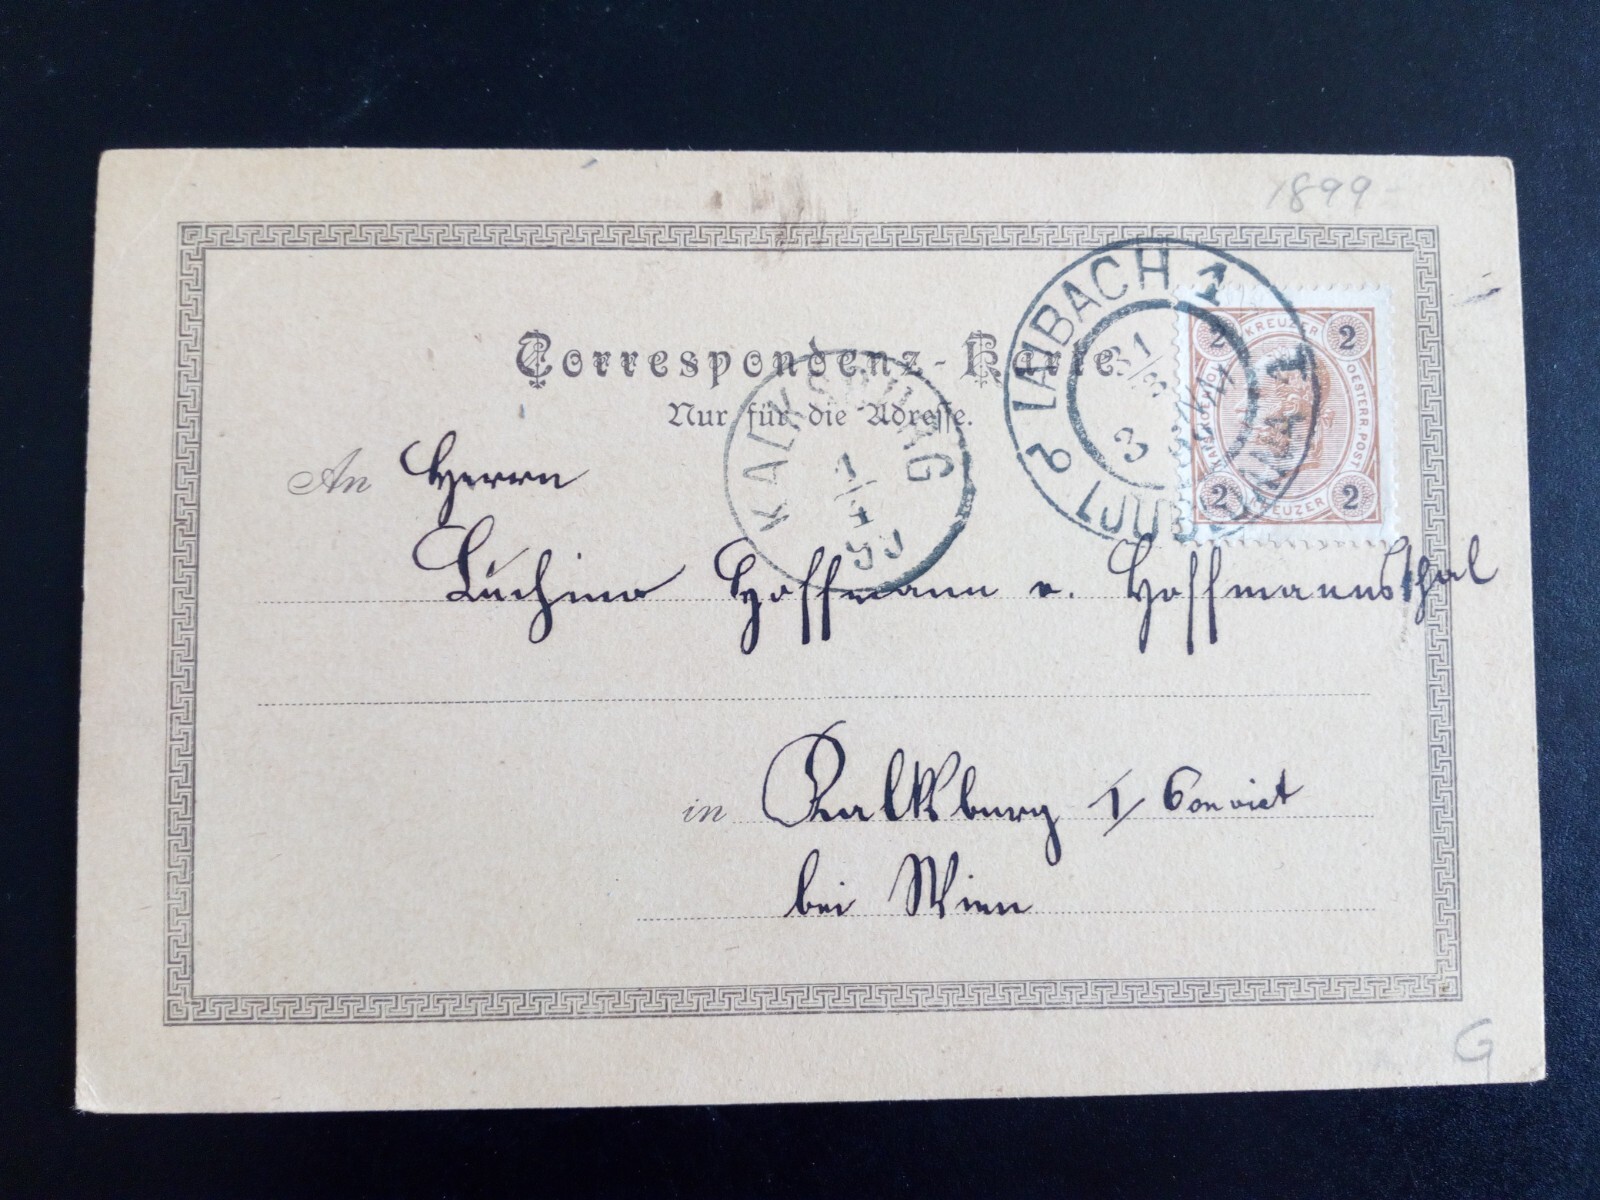 1899
LAIBACH 1
LJUBLJANA 1
31/3
3
2 KREUZER 2
OESTERR. POST
2 KREUZER 2
Correspondenz-Karte
Nur für die Adresse.
KALKSBURG
1/4
99
An Herrn
Luchino Hoffmann v. Hoffmannsthal
in Kalksburg I/ Convict
bei Wien
G